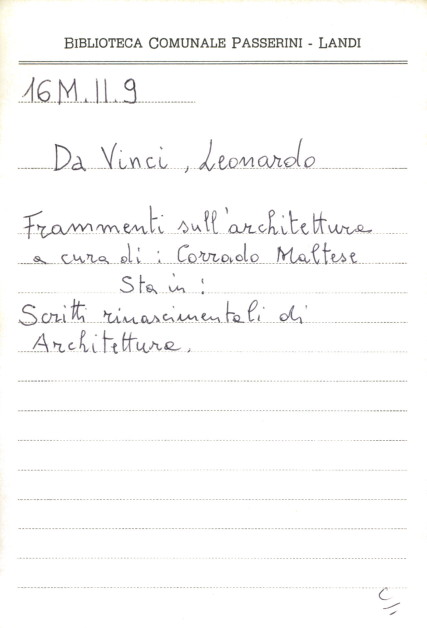 BIBLIOTECA COMUNALE PASSERINI - LANDI
16 M. II. 9
Da Vinci, Leonardo
Frammenti sull'architettura
a cura di: Corrado Maltese
Sta in:
Scritti rinascimentali di
Architettura.
C